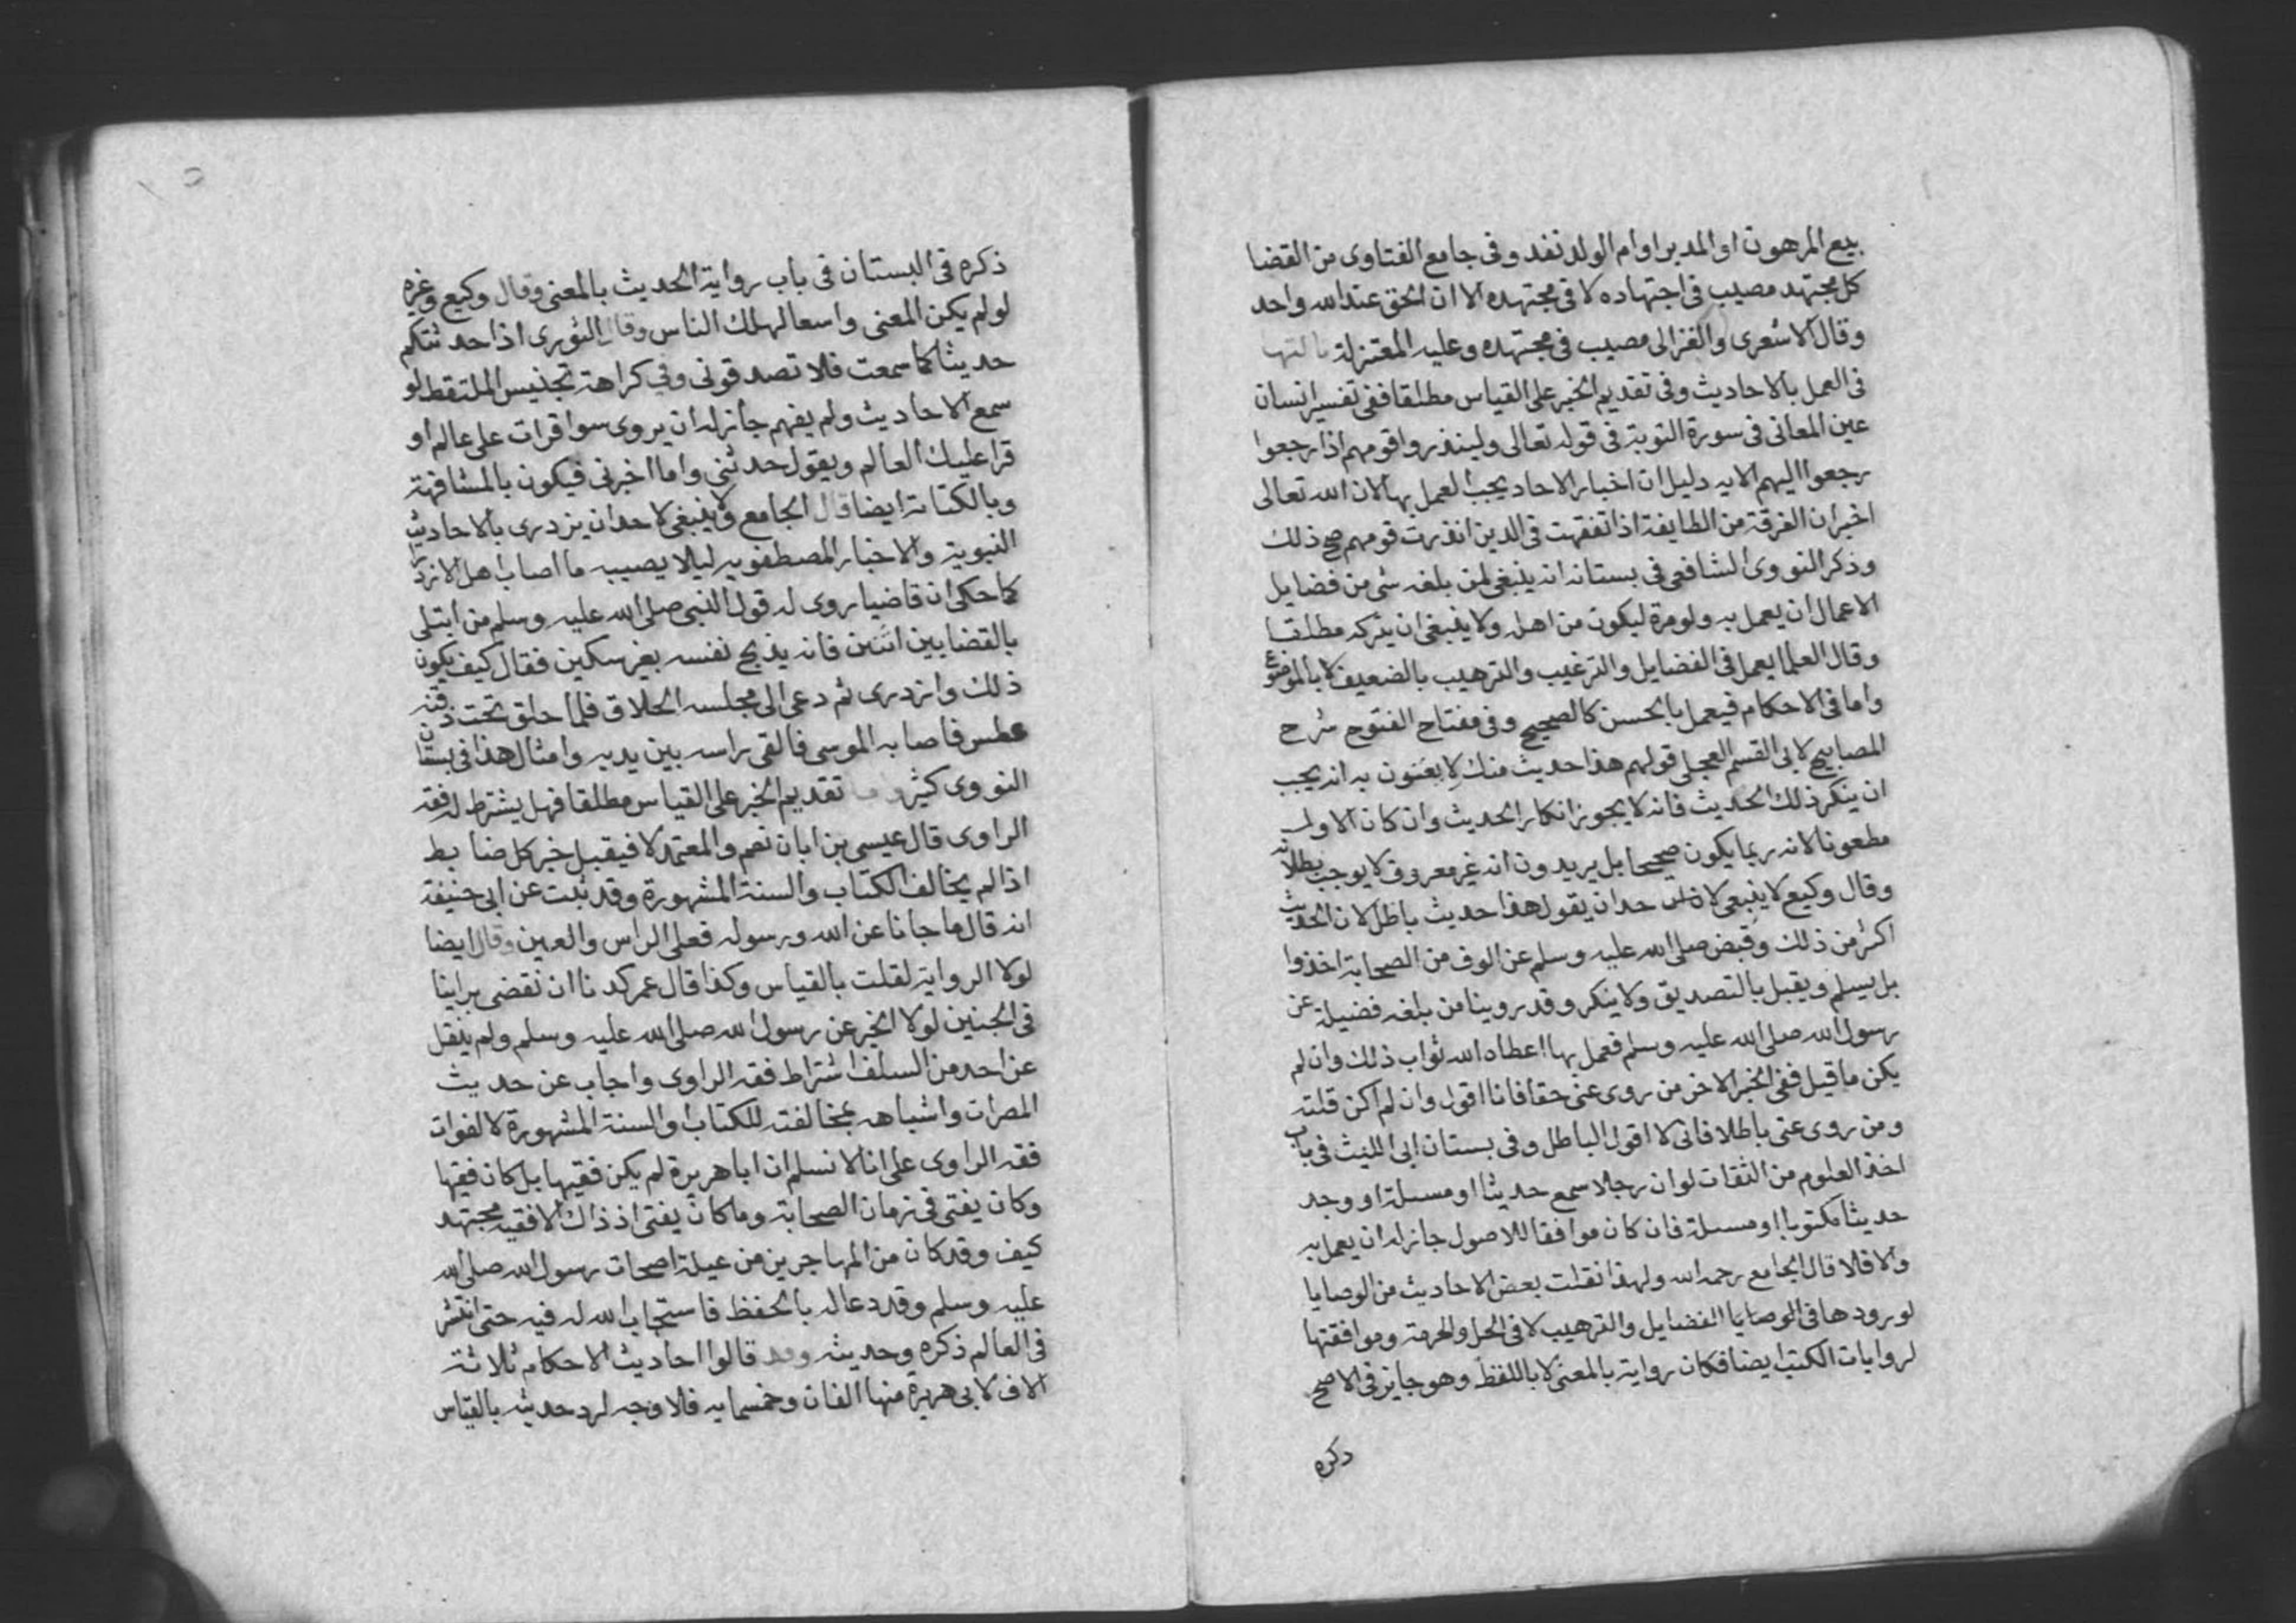 بيع المرهون او المدبر او ام الولد نفد وفى جامع الفتاوى من القضا
كل مجتهد مصيب فى اجتهاده لا فى مجتهده الا ان الحق عند الله واحد
وقال الاشعرى والغزالى مصيب فى مجتهده وعليه المعتزلة
فى العمل بالاحاديث وفى تقديم الخبر على القياس مطلقا ففى تفسير انسان
عين المعانى فى سورة التوبة فى قوله تعالى ولينذروا قومهم اذا رجعوا
رجعوا اليهم الايه دليل ان اخبار الاحاد يجب العمل بها لان الله تعالى
اخبر ان الفرقة من الطايفة اذا تفقهت فى الدين انذرت قومهم صح ذلك
وذكر النووى الشافعى فى بستانه انه ينبغى لمن بلغه شى من فضايل
الاعمال ان يعمل به ولو مرة ليكون من اهله ولا ينبغى ان يتركه مطلقا
وقال العلما يعمل فى الفضايل والترغيب والترهيب بالضعيف لا بالموضوع
واما فى الاحكام فيعمل بالحسن كالصحيح وفى مفتاح الفتوح شرح
المصابيح لابى القسم العجلى قولهم هذا حديث منكر لا يعنون به انه يجب
ان ينكر ذلك الحديث فانه لا يجوز انكار الحديث وان كان الاول
مطعونا لانه ربما يكون صحيحا بل يريدون انه غير معروف لا يوجب بطلانه
وقال وكيع لا ينبغى لاحد ان يقول هذا حديث باطل لان الحديث
اكثر من ذلك وقبض صلى الله عليه وسلم عن الوف من الصحابة اخذوا
بل يسلم ويقبل بالتصديق ولا ينكر وقد روينا من بلغه فضيلة عن
رسول الله صلى الله عليه وسلم فعمل بها اعطاه الله ثواب ذلك وان لم
يكن ما قيل ففى الخبر الاخر من روى عنى حقا فانا اقول وان لم اكن قلته
ومن روى عنى باطلا فانى لا اقول الباطل وفى بستان ابى الليث فى باب
اخذ العلوم من الثقات لو ان رجلا سمع حديثا او مسئلة او وجد
حديثا مكتوبا او مسئلة فان كان موافقا للاصول جاز له ان يعمل به
والا فلا قال الجامع رحمه الله ولهذا نقلت بعض الاحاديث من الوصايا
لورودها فى الوصايا الفضايل والترهيب لا فى الحل والحرمة وموافقتها
لروايات الكتب ايضا فكان رواية بالمعنى لا باللفظ وهو جايز فى الاصح
ذكره
ذكره فى البستان فى باب رواية الحديث بالمعنى وقال وكيع وغيره
لو لم يكن المعنى واسعا لهلك الناس وقال الثورى اذا حدثتكم
حديثا كما سمعت فلا تصدقونى وفى كراهة تجنيس الملتقط لو
سمع الاحاديث ولم يفهم جاز له ان يروى سوا قرات على عالم او
قرا عليك العالم ويقول حدثنى واما اخبرنى فيكون بالمشافهة
وبالكتابة ايضا قال الجامع ولا ينبغى لاحد ان يزدرى بالاحاديث
النبوية والاخبار المصطفويه ليلا يصيبه ما اصاب اهل الازدرا
كما حكى ان قاضيا روى له قول النبى صلى الله عليه وسلم من ابتلى
بالقضا بين اثنين فانه يذبح نفسه بغير سكين فقال كيف يكون
ذلك وازدرى ثم دعى الى مجلسه الحلاق فلما حلق تحت ذقنه
عطس فاصابه الموسى فالقى راسه بين يديه وامثال هذا فى بستان
النووى كثير تقديم الخبر على القياس مطلقا فهل يشترط له فقه
الراوى قال عيسى بن ابان نعم والمعتمد لا فيقبل خبر كل ضابط
اذا لم يخالف الكتاب والسنة المشهورة وقد ثبت عن ابى حنيفة
انه قال ما جانا عن الله ورسوله فعلى الراس والعين وقال ايضا
لولا الرواية لقلت بالقياس وكذا قال عمر كدنا ان نقضى براينا
فى الجنين لولا الخبر عن رسول الله صلى الله عليه وسلم ولم ينقل
عن احد من السلف اشتراط فقه الراوى واجاب عن حديث
المصرات واشباهه بمخالفته للكتاب والسنة المشهورة لا لفوات
فقه الراوى على انا لا نسلم ان ابا هريرة لم يكن فقيها بل كان فقيها
وكان يفتى فى زمان الصحابة وما كان يفتى اذ ذاك الا فقيه مجتهد
كيف وقد كان من المهاجرين من عيلة اصحاب رسول الله صلى الله
عليه وسلم وقد دعا له بالحفظ فاستجاب الله له فيه حتى انتشر
فى العالم ذكره وحديثه وقد قالوا احاديث الاحكام ثلاثة
الاف لابى هريرة منها الفان وخمسمايه فلا وجه لرد حديثه بالقياس